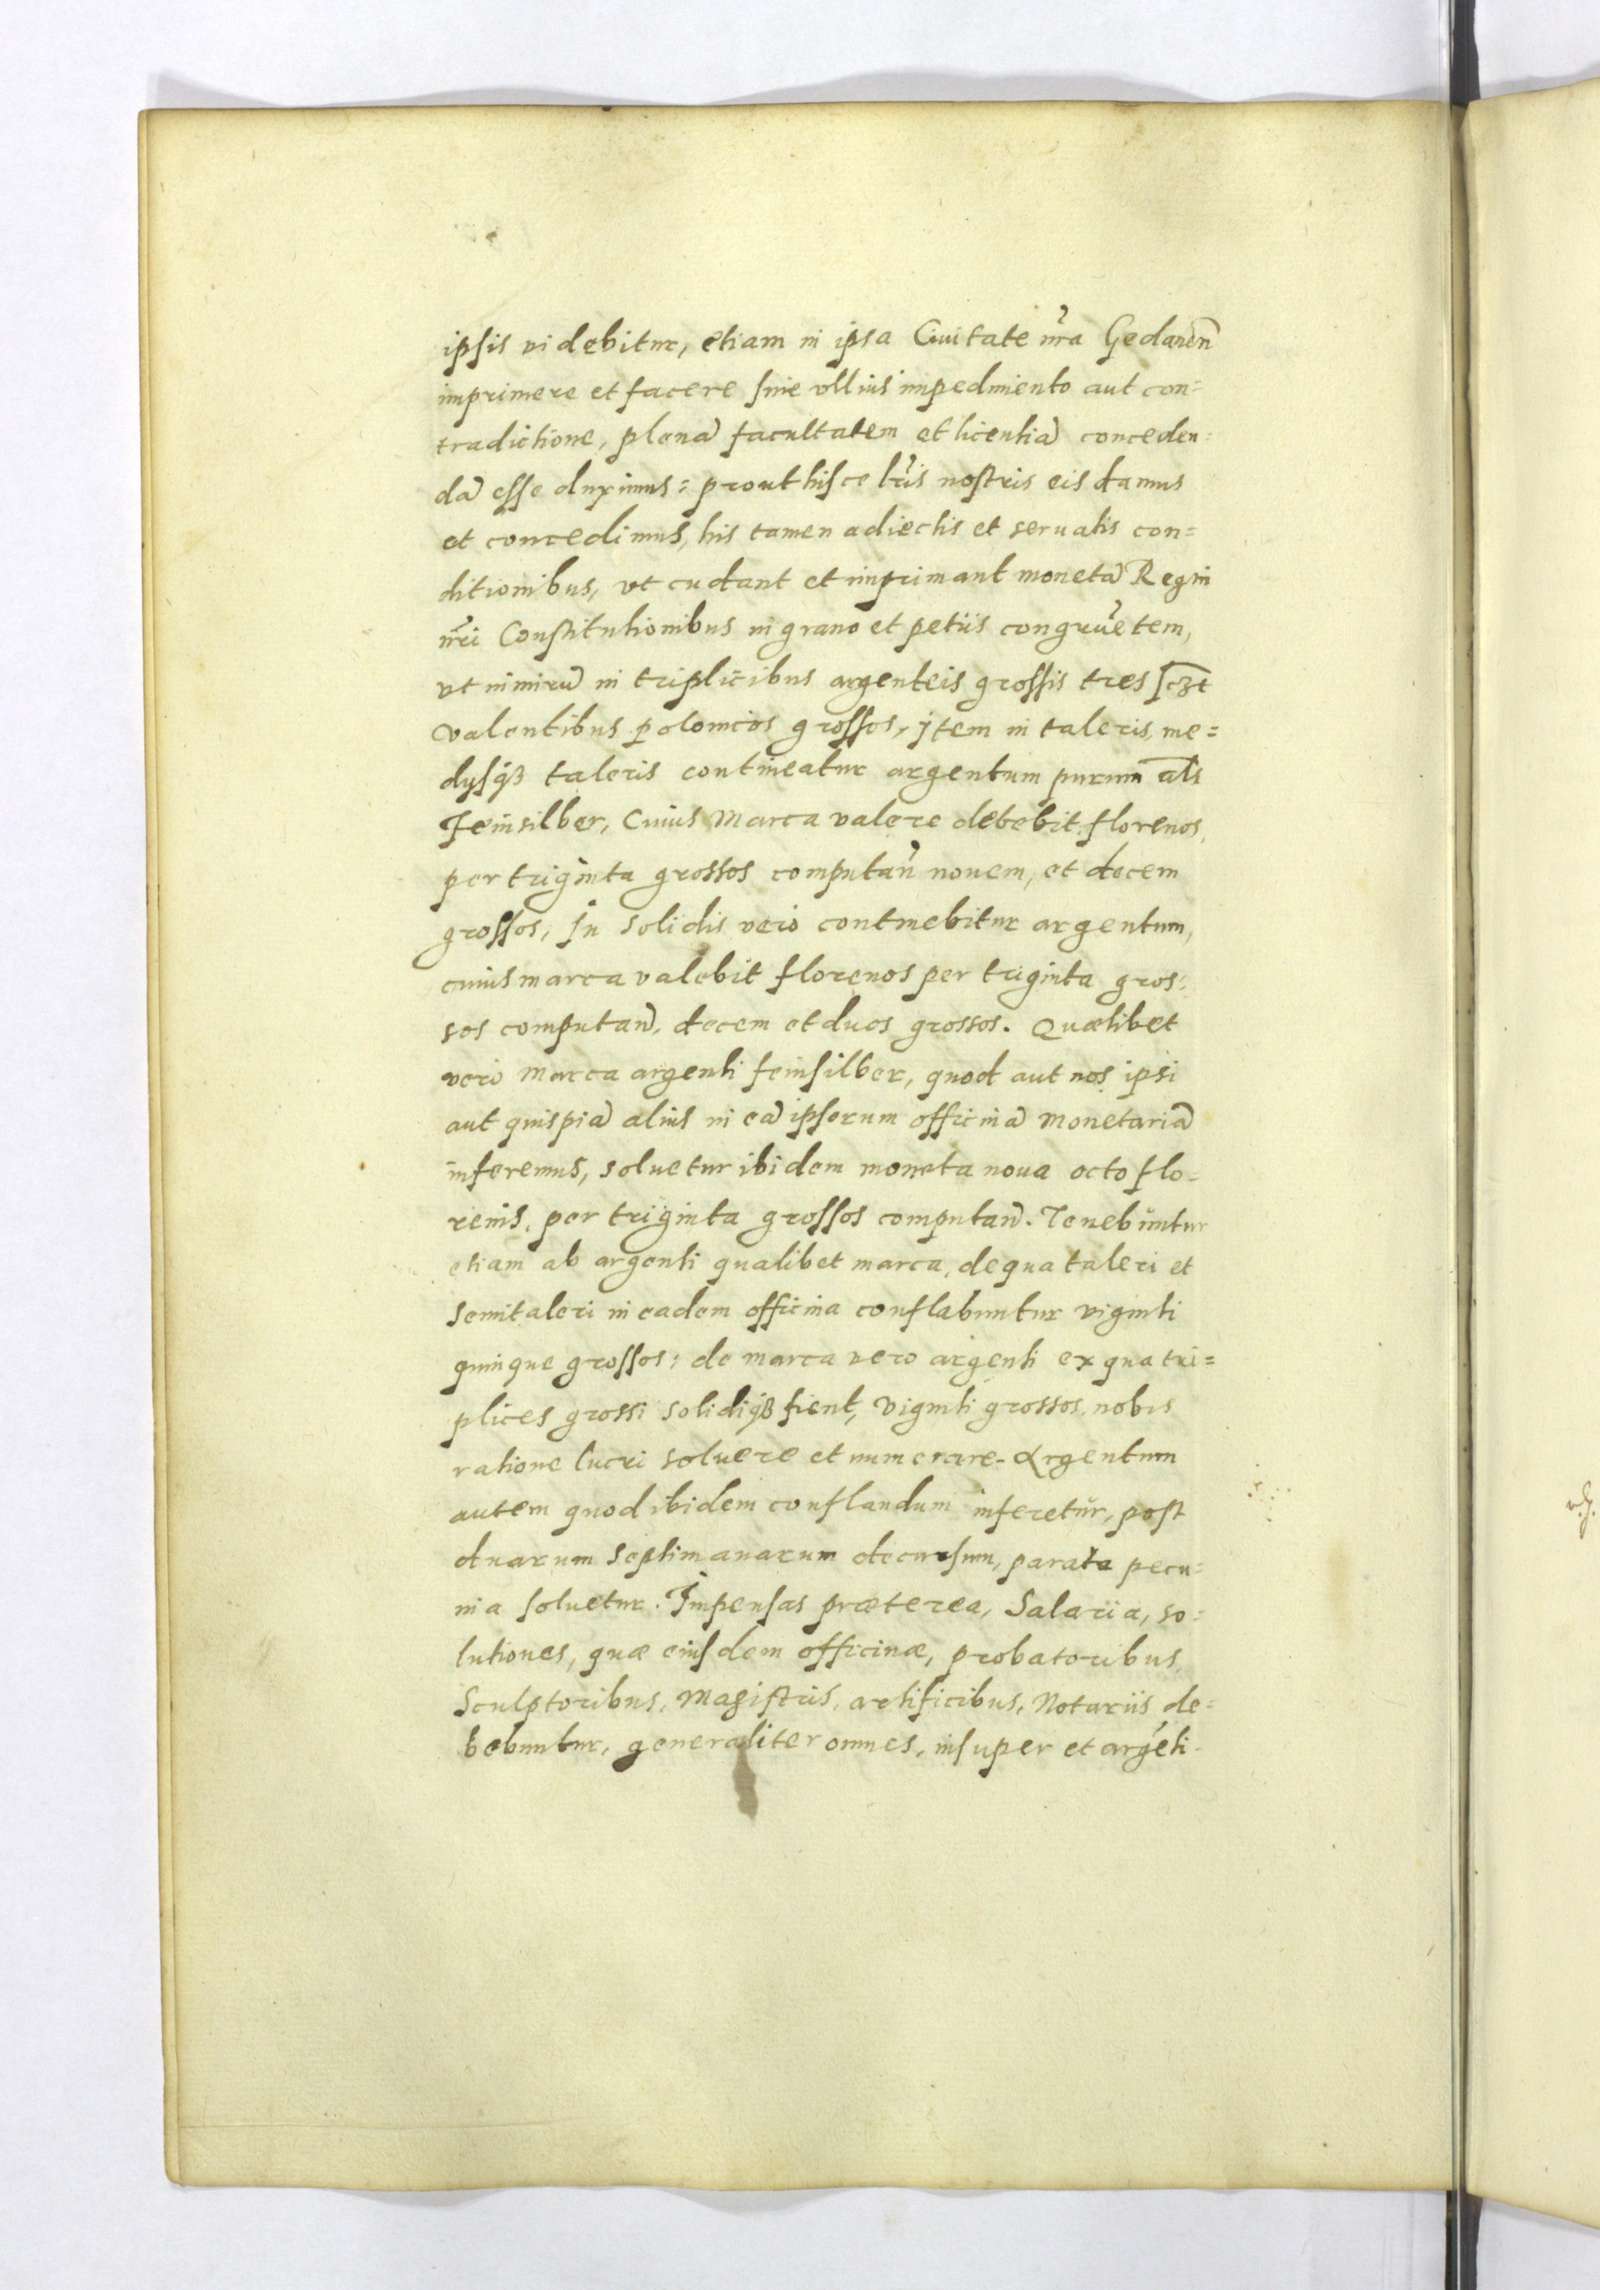 ipsis videbitur, etiam in ipsa Ciuitate nrã Gedaneñ
imprimere et facere sine vllius impedimento aut con=
tradictione, plenã facultatem et licentiã conceden=
dã esse duximus: prout hisce lrĩs nostris eis damus
et concedimus, his tamen adiectis et seruatis con=
ditionibus, vt cudant et imprimant monetã Regni
nrĩ Constitutionibus in grano et petiis congruẽtem,
vt nimirũ in triplicibus argenteis grossis tres
valentibus polonicos grossos, Item in taleris me=
dysqȝ taleris contineatur argentum purum als
Feinsilber, Cuius Marca valere debebit florenos,
per triginta grossos computañ nouem, et decem
grossos, In solidis vero continebitur argentum,
cuius marca valebit florenos per triginta gros=
sos computañ, decem et duos grossos. Quælibet
vero Marca argenti feinsilber, quod aut nos ipsi
aut quispiã alius in eã ipsorum officinã Monetariã
inferemus, soluetur ibidem moneta noua octo flo=
renis, per triginta grossos computañ. Tenebuntur
etiam ab argenti qualibet marca, de qua taleri et
semitaleri in eadem officina conflabuntur viginti
quinque grossos: de marca vero argenti ex qua tri=
plices grossi solidiqȝ fient, viginti grossos, nobis
ratione lucri soluere et numerare. Argentum
autem quod ibidem conflandum inferetur, post
duarum septimanarum decursum, parata pecu=
nia soluetur. Impensas præterea, Salaria, so=
lutiones, quæ eiusdem officinæ, probatoribus,
Sculptoribus, Magistris, artificibus, Notariis de=
bebuntur, generaliter omnes, insuper et argẽti